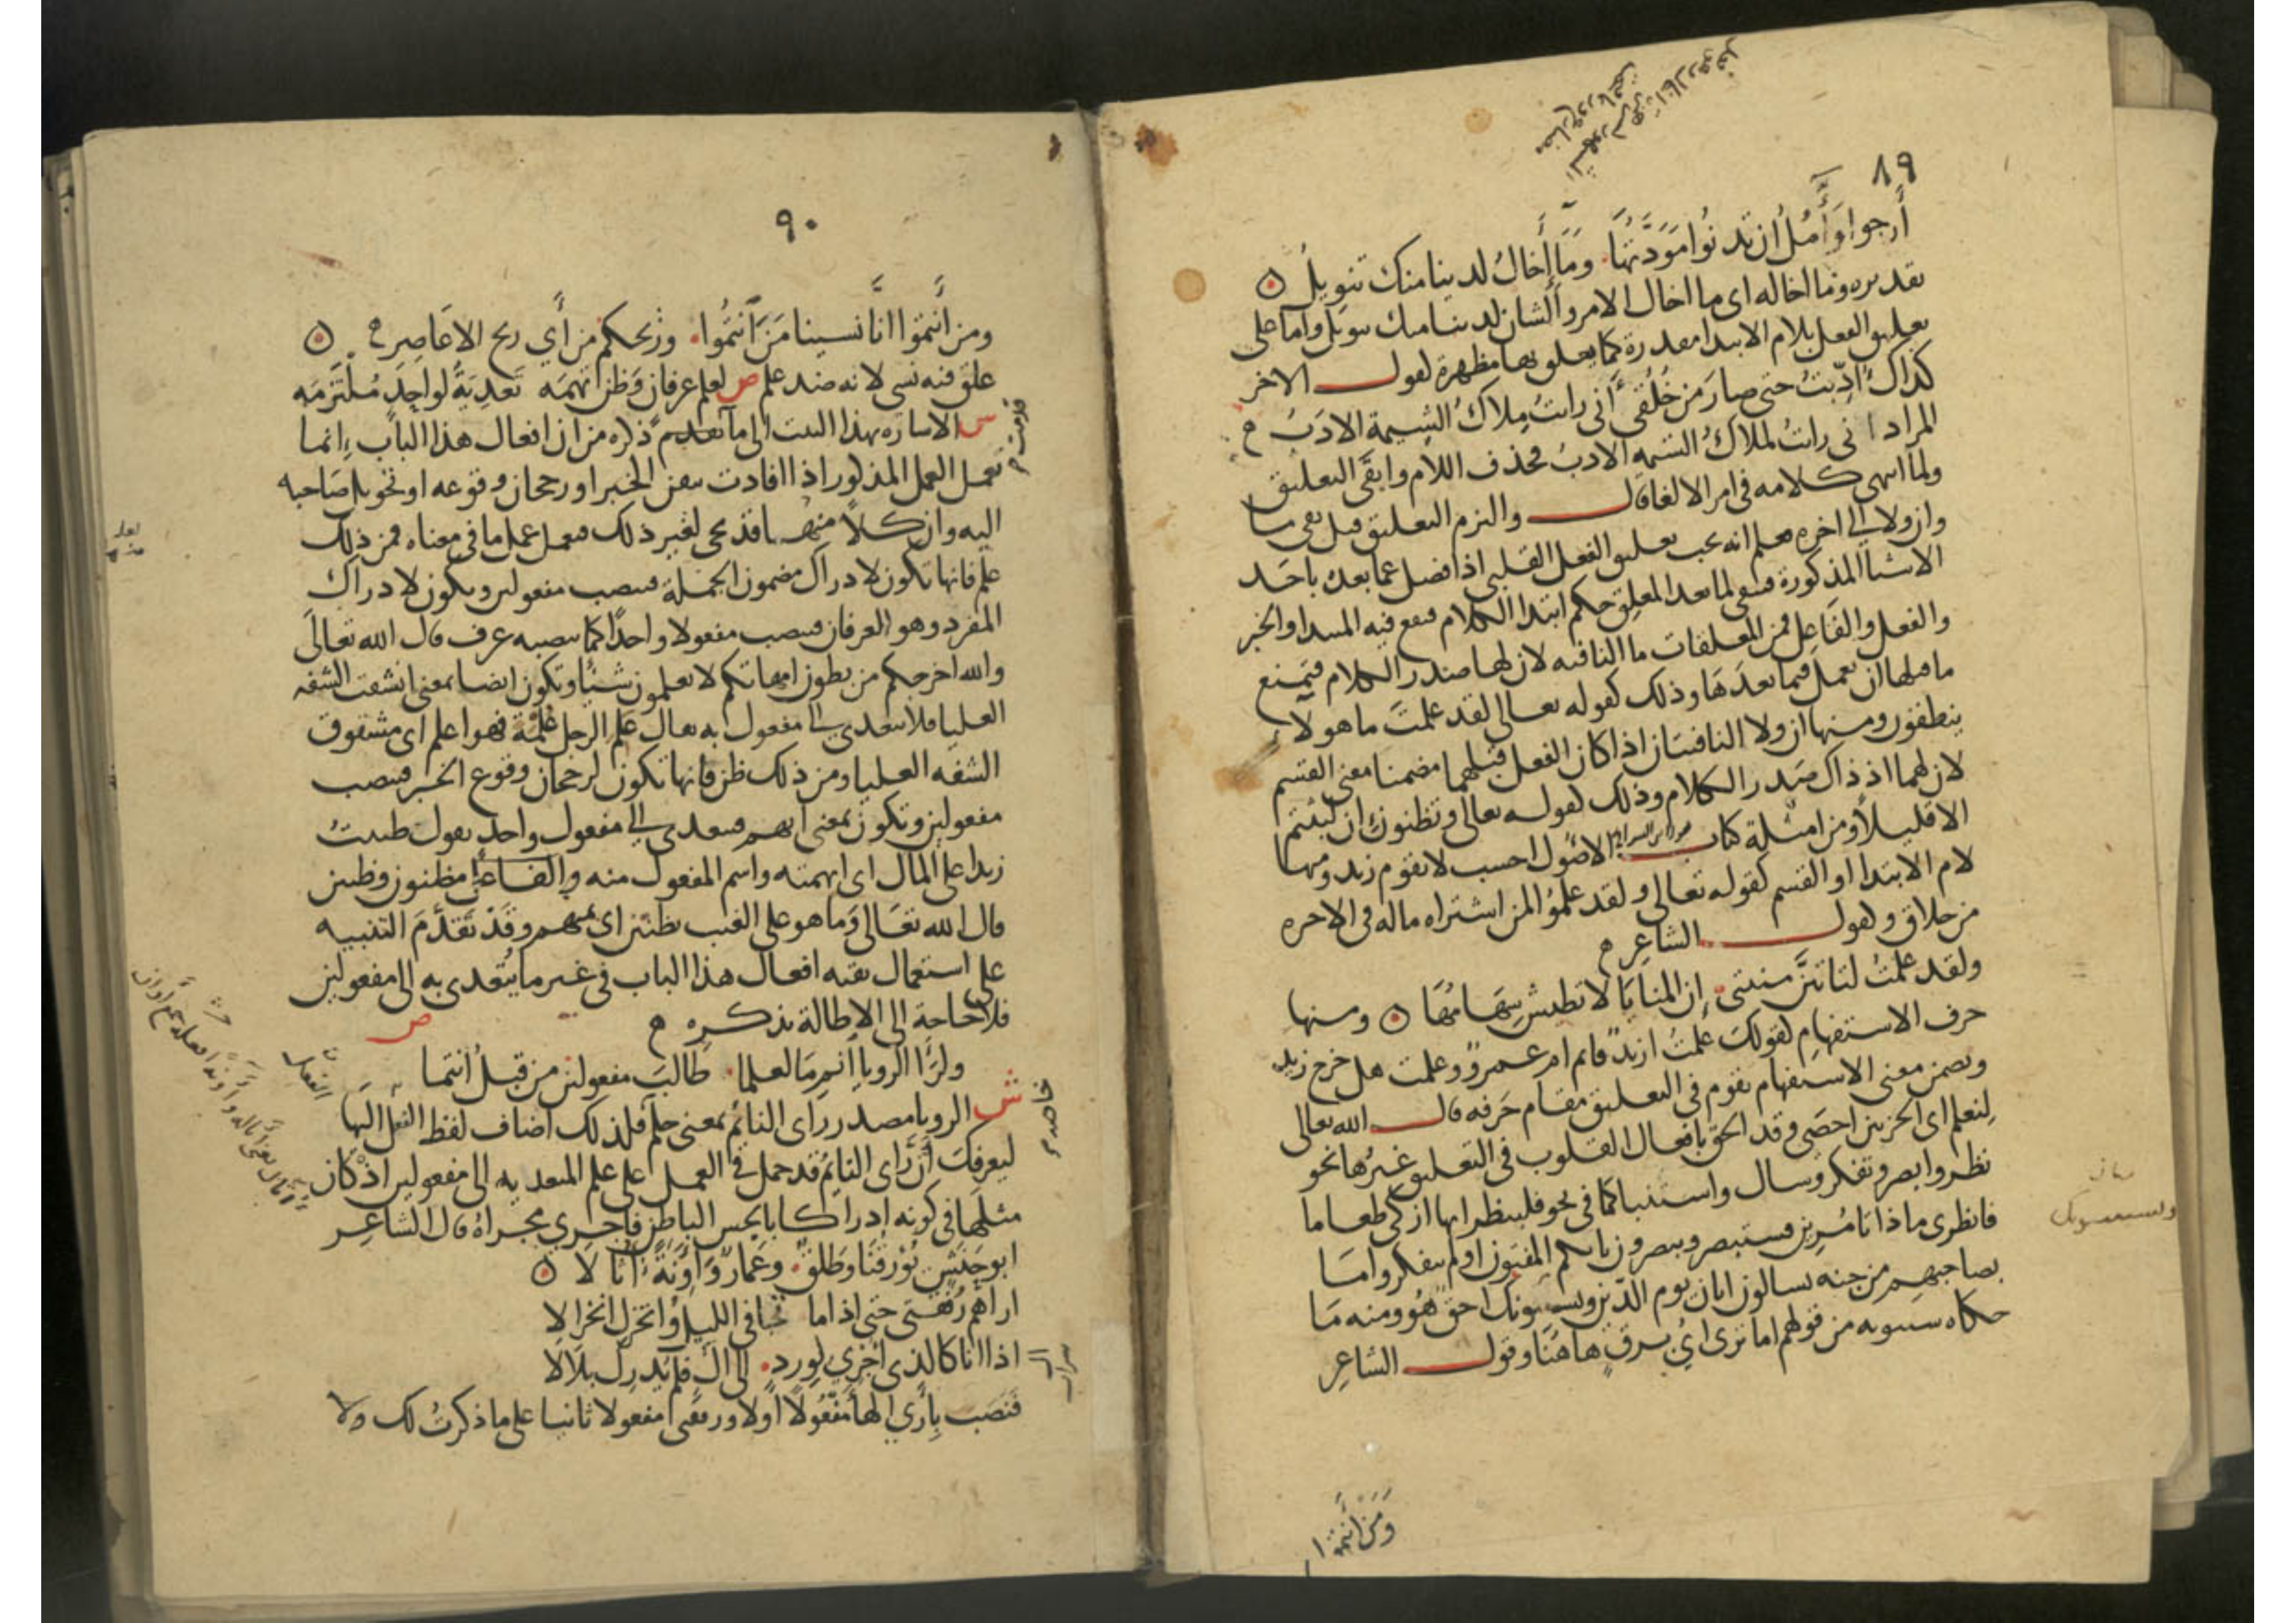 ٨٩
أرجوا وآمل أن تدنوا مودتها وما إخال لدينا منك تنويل
تقديره وما اخاله اى ما اخال الامر والشان لدينا منك تنويل واما على
تعليق الفعل بلام الابتدا مقدرة كما يعلق بها مظهرة كقول الاخر
كذاك ادبت حتى صار من خلقى أنى رايت ملاك الشيمة الادب
المراد انى رايت لملاك الشيمه الادب فحذف اللام وابقى التعليق
ولما انهى كلامه فى امر الالغا قال والتزم التعليق قبل نفى ما
وان ولا الى اخره فعلم انه يجب تعليق الفعل القلبى اذا فصل عما بعده باحد
الاشيا المذكورة فيبقى لما بعد المعلق حكم ابتدا الكلام فيقع فيه المبتدا والخبر
والفعل والفاعل فمن المعلقات ما النافيه لان لها صدر الكلام فيمتنع
ما قبلها ان يعمل فيما بعدها وذلك كقوله تعالى لقد علمت ما هولآ
ينطقون ومنها ان ولا النافيتان اذا كان الفعل قبلهما مضمنا معنى القسم
لان لهما اذ ذاك صدر الكلام وذلك كقوله تعالى وتظنون ان لبثتم
الا قليلا ومن امثلة كتاب الاصول احسب لا يقوم زيد ومنها
لام الابتدا او القسم كقوله تعالى ولقد علموا لمن اشتراه ماله فى الاخره
من خلاق وكقول الشاعر
ولقد علمت لتاتين منيتى إن المنايا لا تطيش سهامها ومنها
حرف الاستفهام كقولك علمت ازيد قائم ام عمرو وعلمت هل خرج زيد
وتضمن معنى الاستفهام يقوم فى التعليق مقام حرفه قال الله تعالى
لنعلم اى الحزبين احصى وقد الحق بافعال القلوب فى التعليق غيرها نحو
نظر وابصر وتفكر وسال واستنبا كما فى نحو فلينظر ايها ازكى طعاما
فانظرى ماذا تامرين فستبصر ويبصرون بايكم المفتون اولم يتفكروا ما
بصاحبهم من جنه يسالون ايان يوم الدين ويستنبونك احق هو ومنه ما
حكاه سيبويه من قولهم اما ترى اى برق هاهنا وقول الشاعر
ومن أنتموا
٩٠
ومن أنتموا انا نسينا من أنتموا وريحكم من أي ريح الاعاصر
علق فيه نسى لانه ضد علم ص لعلم عرفان وظن تهمه تعدية لواحد ملتزمه
ش الاشاره بهذا البيت الى ما تقدم ذكره من ان افعال هذا الباب انما
تعمل العمل المذكور اذا افادت تيقن الخبر او رجحان وقوعه او تحويل صاحبه
اليه وان كلا منها قد يجى لغير ذلك فيعمل عمل ما فى معناه فمن ذلك
علم فانها تكون لادراك مضمون الجملة فينصب مفعولين ويكون لادراك
المفرد وهو العرفان فينصب مفعولا واحدا كما ينصبه عرف قال الله تعالى
والله اخرجكم من بطون امهاتكم لا تعلمون شيئا وتكون ايضا بمعنى انشقت الشفه
العليا فلا يتعدى الى مفعول به يقال علم الرجل علمة فهو اعلم اى مشقوق
الشفه العليا ومن ذلك ظن فانها تكون لرجحان وقوع الخبر فينصب
مفعولين وتكون بمعنى اتهم فيتعدى الى مفعول واحد يقول ظننت
زيدا على المال اى اتهمته واسم المفعول منه مظنون وظنين
قال الله تعالى وما هو على الغيب بظنين اى بمتهم وقد تقدم التنبيه
على استعمال بقيه افعال هذا الباب فى غير ما يتعدى به الى مفعولين
فلا حاجة الى الاطالة بذكره ص
ولرأى الرويا انم ما لعلما طالب مفعولين من قبل انتما
ش الرويا مصدر رأى النائم بمعنى حلم فلذلك اضاف لفظ الفعل اليها
ليعرفك أن رأى النائم قد حمل فى العمل على علم المتعديه الى مفعولين اذ كان
مثلها فى كونه إدراكا بالحس الباطن فاجري مجراه قال الشاعر
ابو حنش يؤرقنا وطلق وعمار وآونة أثالا
اراهم رفقتى حتى اذا ما تجافى الليل وانخزل انخزالا
اذا انا كالذى أجري لورد الى ال فلم يدرك بلالا
فنصب بأرى الها مفعولا أولا ورفقتى مفعولا ثانيا على ما ذكرت لك ولا